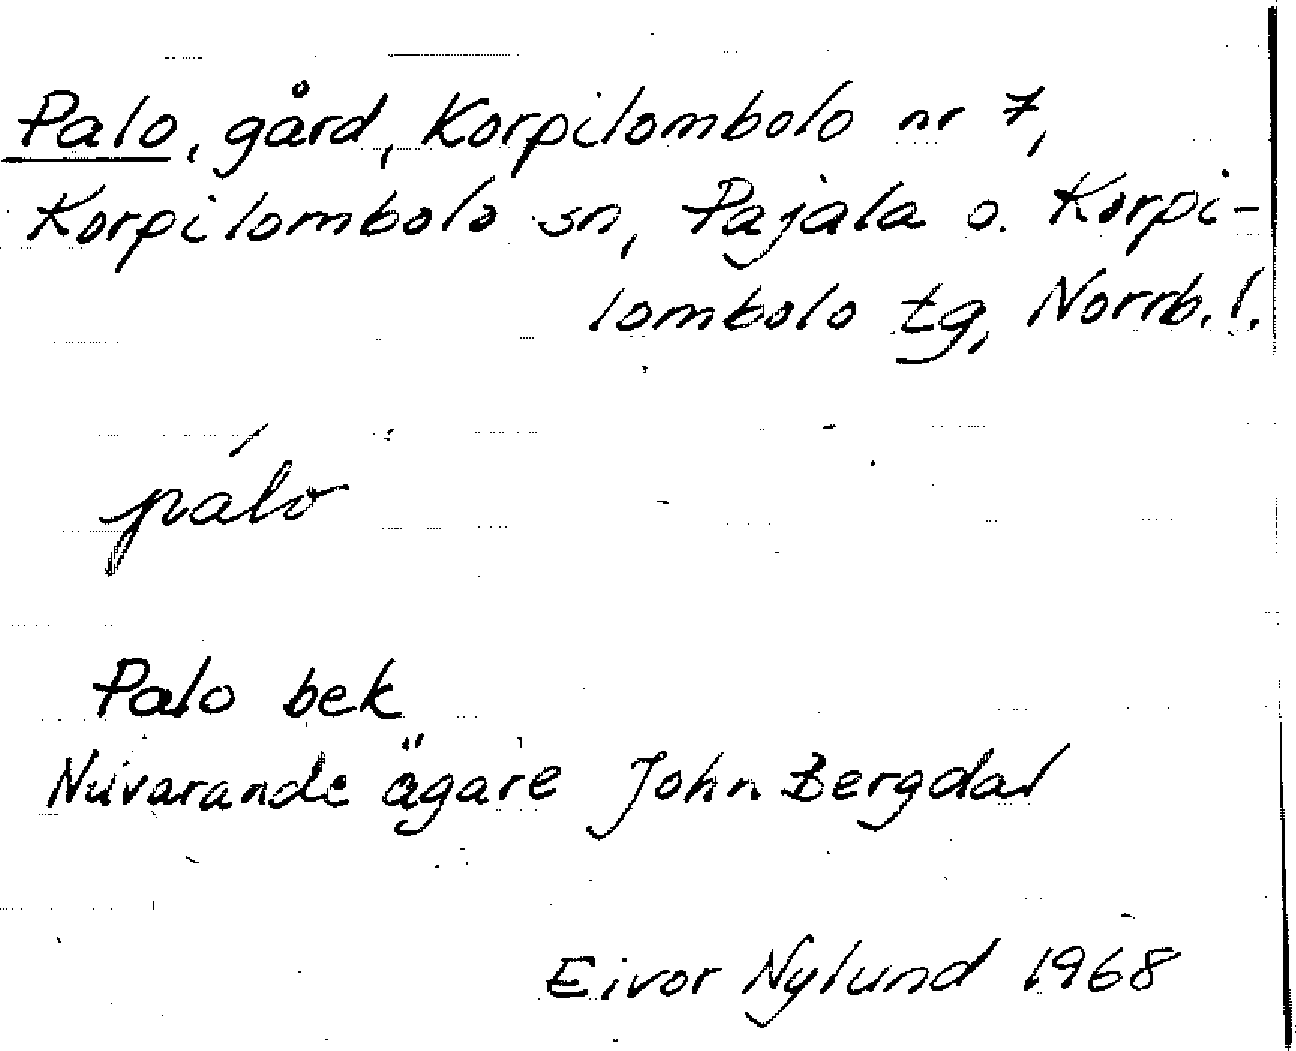 Palo, gård, Korpilombolo nr 7,
Korpilombolo sn, Pajala o. Korpi-
lombolo tg, Norrb. l.
pálo
Palo bek
Nuvarande ägare John Bergdal
Eivor Nylund 1968